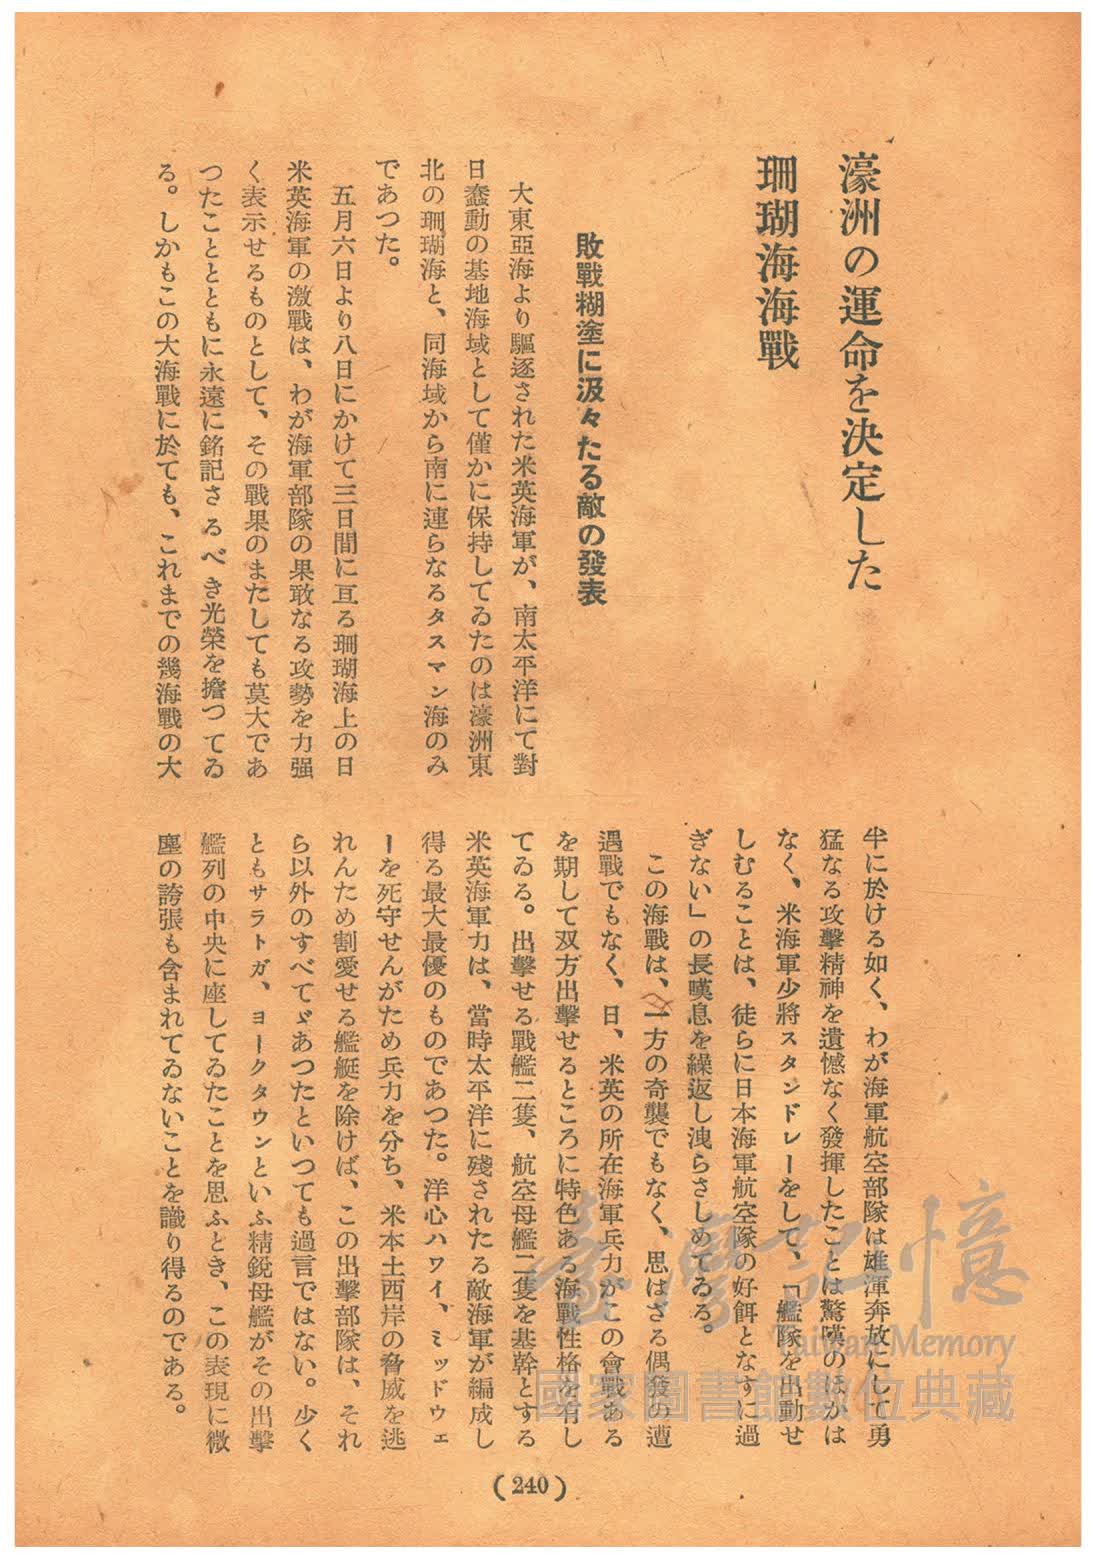 濠洲の運命を決定した
珊瑚海海戰
敗戰糊塗に汲々たる敵の發表
大東亞海より驅逐された米英海軍が、南太平洋にて對
日蠢動の基地海域として僅かに保持してゐたのは濠洲東
北の珊瑚海と、同海域から南に連らなるタスマン海のみ
であつた。
五月六日より八日にかけて三日間に亙る珊瑚海上の日
米英海軍の激戰は、わが海軍部隊の果敢なる攻勢を力强
く表示せるものとして、その戰果のまたしても莫大であ
つたこととともに永遠に銘記さるべき光榮を擔つてゐ
る。しかもこの大海戰に於ても、これまでの幾海戰の大
半に於ける如く、わが海軍航空部隊は雄渾奔放にして勇
猛なる攻擊精神を遺憾なく發揮したことは驚嘆のほかは
なく、米海軍少將スタンドレーをして、「艦隊を出動せ
しむることは、徒らに日本海軍航空隊の好餌となすに過
ぎない」の長嘆息を繰返し洩らさしめてゐる。
この海戰は、一方の奇襲でもなく、思はざる偶發の遭
遇戰でもなく、日、米英の所在海軍兵力がこの會戰ある
を期して双方出擊せるところに特色ある海戰性格を有し
てゐる。出擊せる戰艦二隻、航空母艦二隻を基幹とする
米英海軍力は、當時太平洋に殘されたる敵海軍が編成し
得る最大最優のものであつた。洋心ハワイ、ミッドウェ
ーを死守せんがため兵力を分ち、米本土西岸の脅威を逃
れんため割愛せる艦艇を除けば、この出擊部隊は、それ
ら以外のすべてゞあつたといつても過言ではない。少く
ともサラトガ、ヨークタウンといふ精銳母艦がその出擊
艦列の中央に座してゐたことを思ふとき、この表現に微
塵の誇張も含まれてゐないことを識り得るのである。
(240)
臺灣記憶
Taiwan Memory
國家圖書館數位典藏